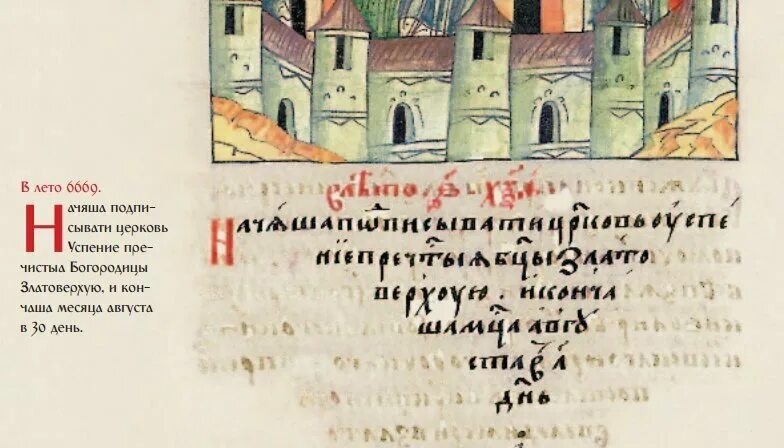 В лето 6669.
Начяша подпи-
сывати церковь
Успение пре-
чистыа Богородицы
Златоверхую, и кон-
чаша месяца августа
в 30 день.
влѣто
Начяша поⷣписывати цр҃ковь оуспе
ніе пречⷭ҇тыѧ бц҃ы злато
верхоую . и сконча
ша мцⷭ҇а авгу
ста в л҃
дн҃ь